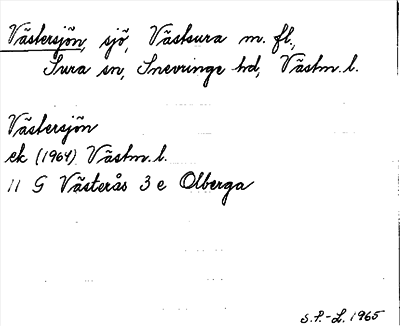 Västersjön, sjö, Västsura m. fl.,
Sura sn, Snevringe hd, Västm. l.
Västersjön
ek (1964) Västm. l.
11 G Västerås 3 e Olberga
S.P.-L. 1965